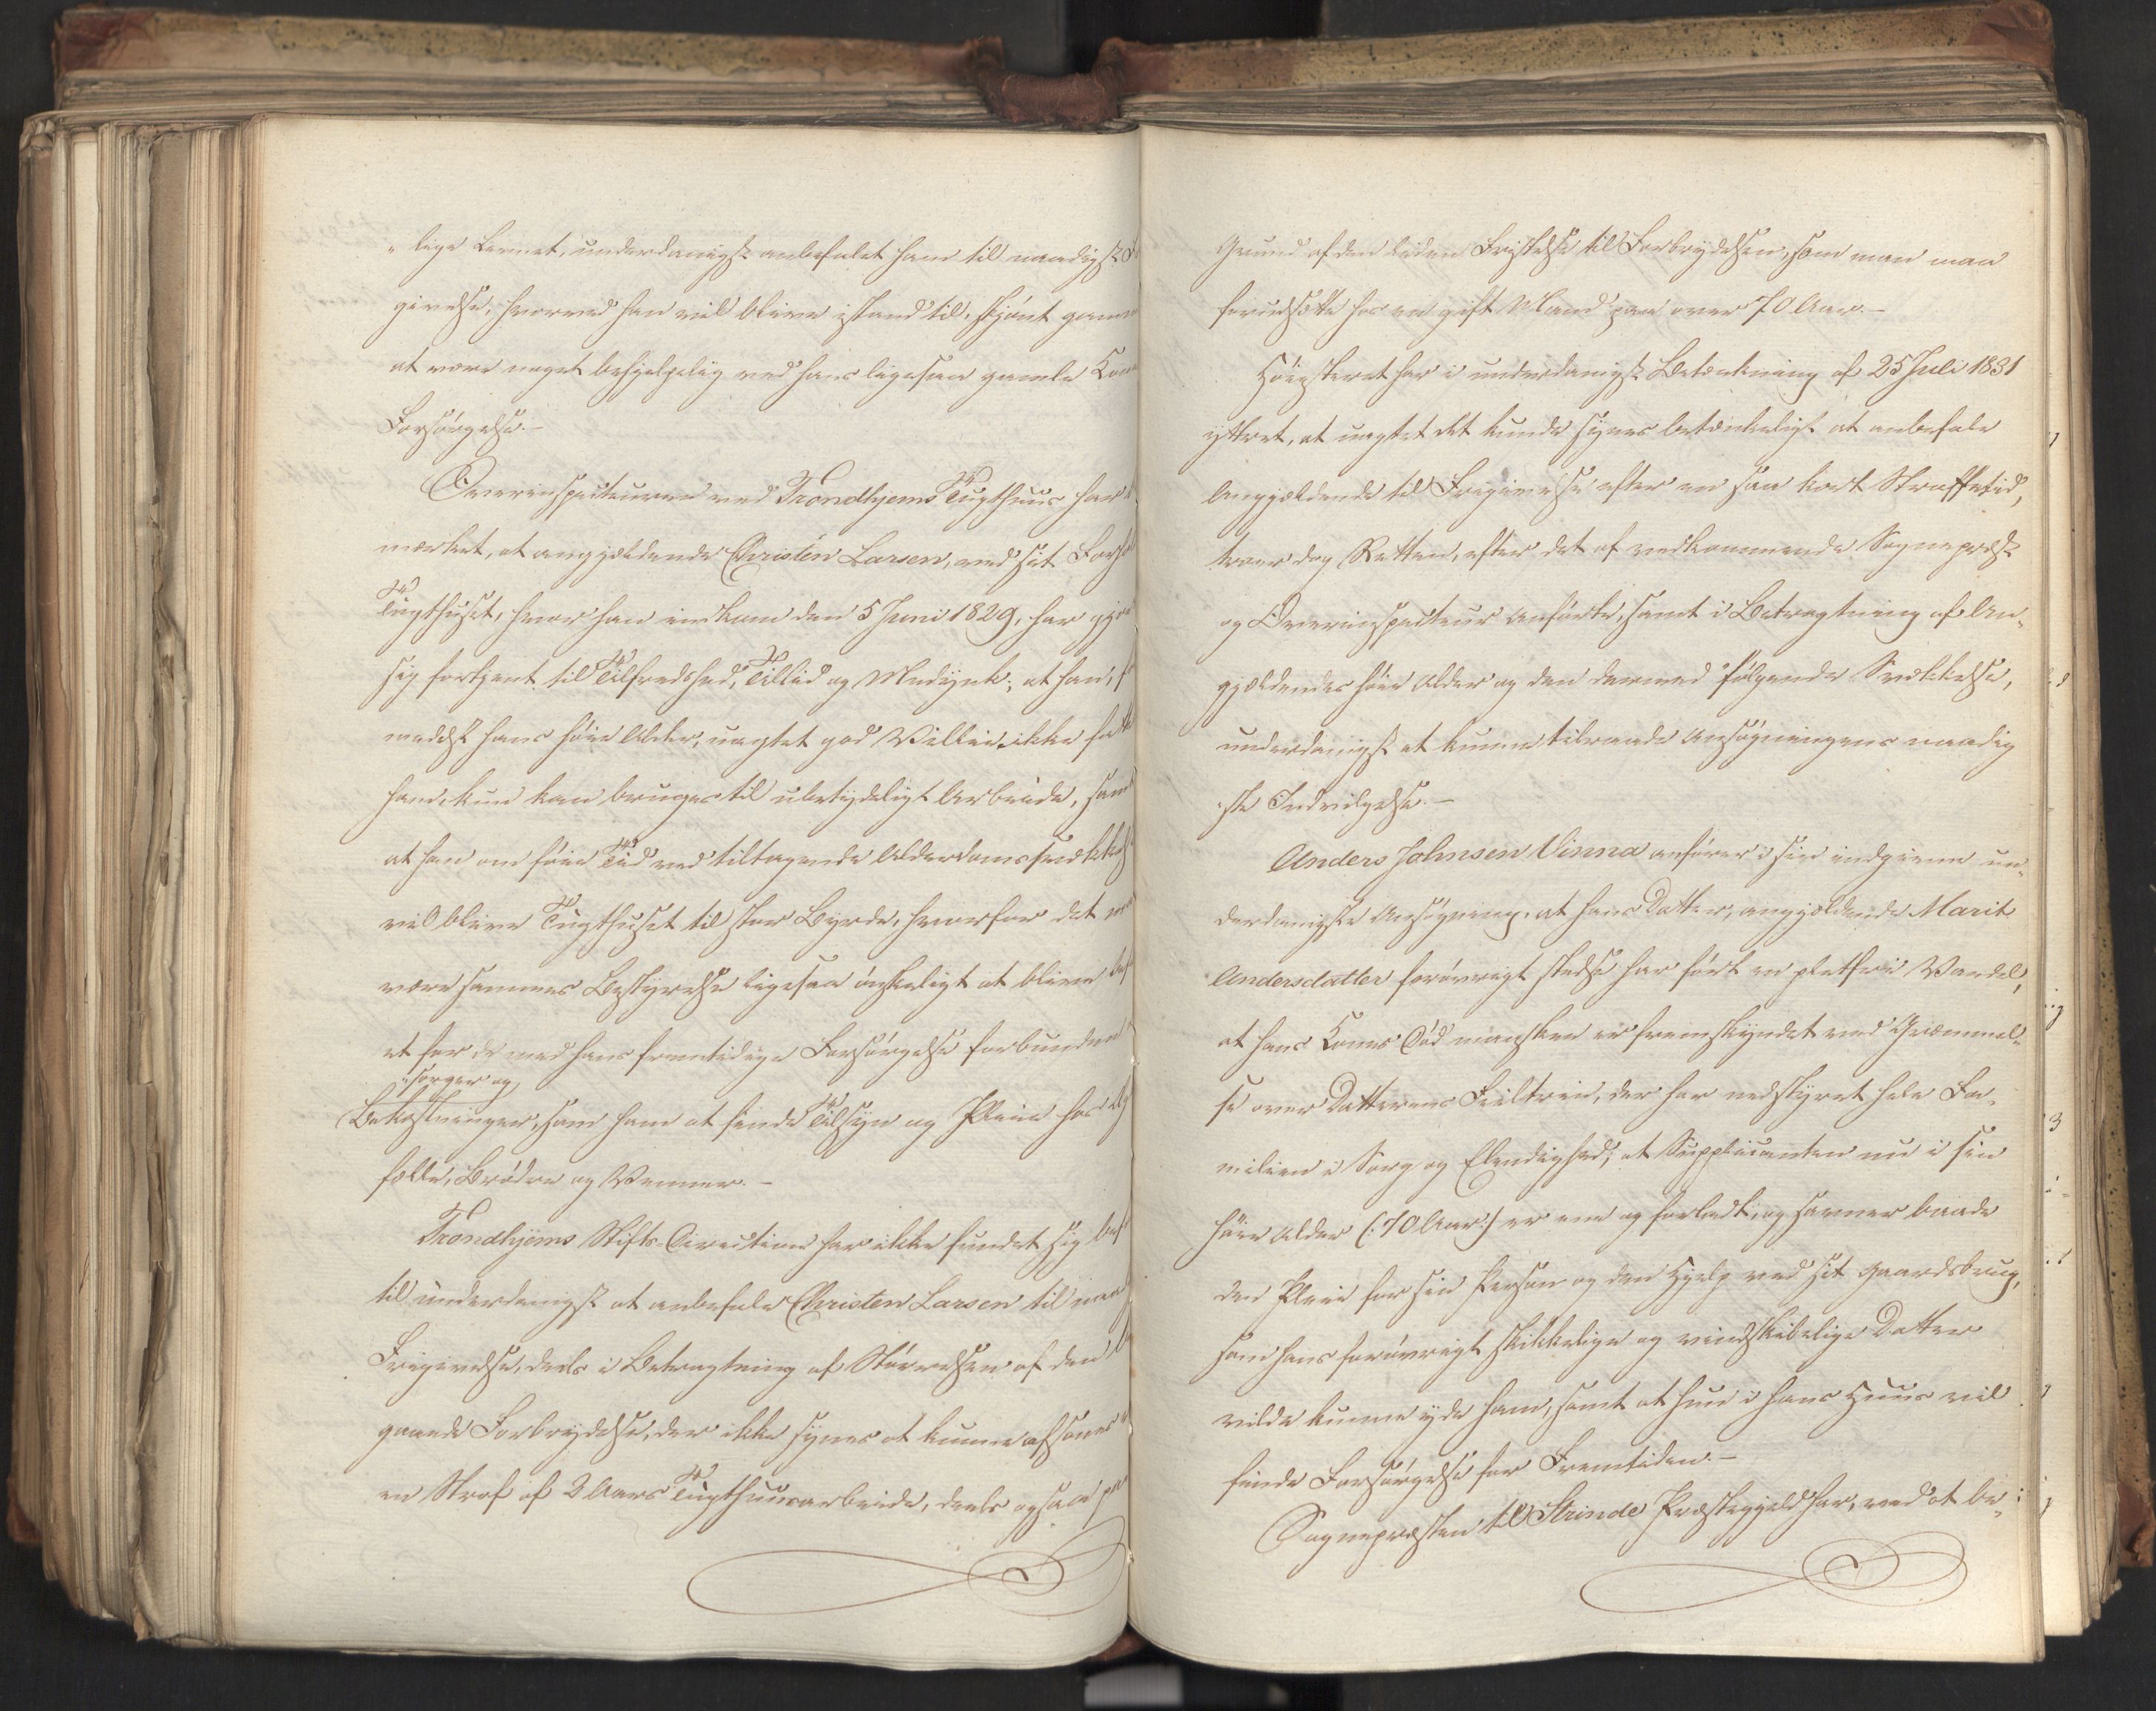 "lige Lemet, underdanigst anbefalet ham til naadigst
givelse, hvorved han vil blive istand til, skjønt gam
at være noget behjelpelig ved hans ligesaa gamle Kon
Forsørgelse.-
Overinspecteuren ved Trondhjems Tugthuus har
mærket, at angjældende Christen Larsen, ved sit Forh
Tugthuset, hvor han indkom den 5 Juni 1829, har gjor
sig fortjent til Tilfredshed, Tillid og Medynk; at han,
medelst hans høie Alder, uagtet god Villie ikke
ham, kun kan bruges til ubetydeligt Arbeide, sam
at han om føie Tid ved tiltagende Alderdomssvækkels
vil blive Tugthuset til stor Byrde, hvorfor det
være sammes Bestyrelse ligesaa ønskeligt at blive bef
et for de med hans fremtidige Forsørgelse forbundne
"sorger og
Bekostninger, som ham at finde Tilsyn og Pleie hos
fælle, Brødre og Venner.-
Trondhjems Stifts-Direction har ikke fundet sig bef
til underdanigst at anbefale Christen Larsen til naa
Frigivelse, deels i Betragtning af Størrelsen af den
gaaede Forbrydelse, der ikke synes at kunne afsones
en Straf af 2 Aars Tugthuusarbeide, deels ogsaa paa
Grund af den liden Fristelse til Forbrydelsen, som man maa
forudsætte hos en gift Mand paa over 70 Aar.-
Høiesteret har i underdanigst Betænkning af 25 Juli 1831
yttret, at uagtet det kunde synes betænkeligt at anbefale
Angjældende til Frigivelse efter en saa kort Straffetid,
troer dog Retten, efter det af vedkommende Sognepræst
og Overinspecteur Anførte, samt i Betragtning af An-
gjældendes høie Alder og den dermed følgende Svækkelse,
underdanigst at kunne tilraade Ansøgningens naadig
"ste Indvilgelse.-
Anders Johnsen Vinna anfører i sin indgivne un-
derdanigste Ansøgning, at hans Datter, angjældende Marit
Andersdatter forøvrigt stedse har ført en pletfri Vandel,
at hans Kones Død maaskee er fremskyndet ved Græmmel-
se over Datterens Feiltrin, der har nedstyrtet hele Fa-
milien i Sorg og Elendighed; at Supplicanten nu i sin
høie Alder (: 70 Aar :) er ene og forladt, og savner baade
den Pleie for sin Person og den Hjelp ved sit Gaardsbrug,
som hans forøvrigt skikkelige og vindskibelige Datter
vilde kunne yde ham, samt at hun i hans Huus vil
finde Forsørgelse for Fremtiden.-
Sognepræsten til Strinde Præstegjeld har, ved at be-